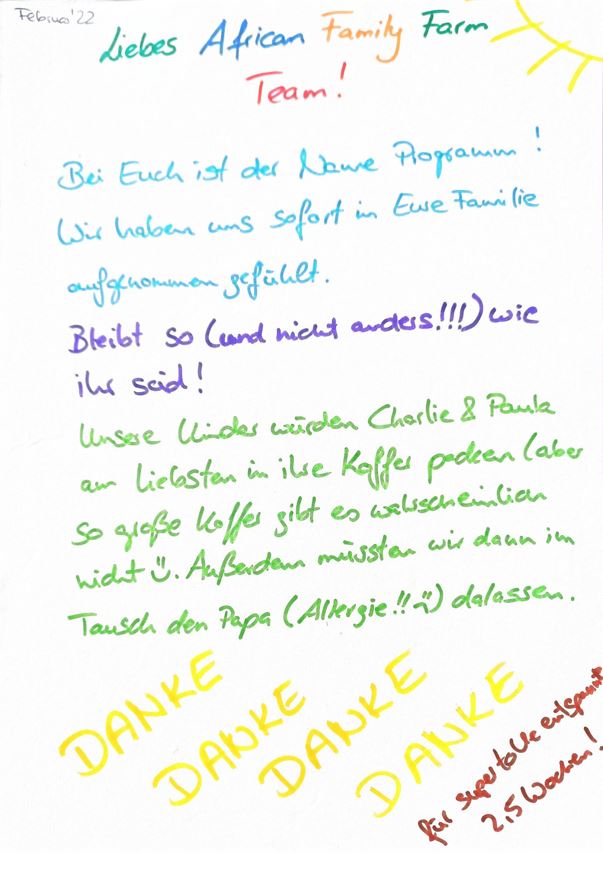 Februar '22
Liebes African Family Farm
Team!
Bei Euch ist der Name Programm!
Wir haben uns sofort in Eure Familie
aufgenommen gefühlt.
Bleibt so (und nicht anders!!!) wie
ihr seid!
Unsere Kinder würden Charlie & Paula
am liebsten in ihre Koffer packen (aber
so große Koffer gibt es wahrscheinlich
nicht ☺. Außerdem müssten wir dann im
Tausch den Papa (Allergie!! ☹) dalassen.
DANKE
DANKE
DANKE
DANKE
für supertolle entspannte
2,5 Wochen!